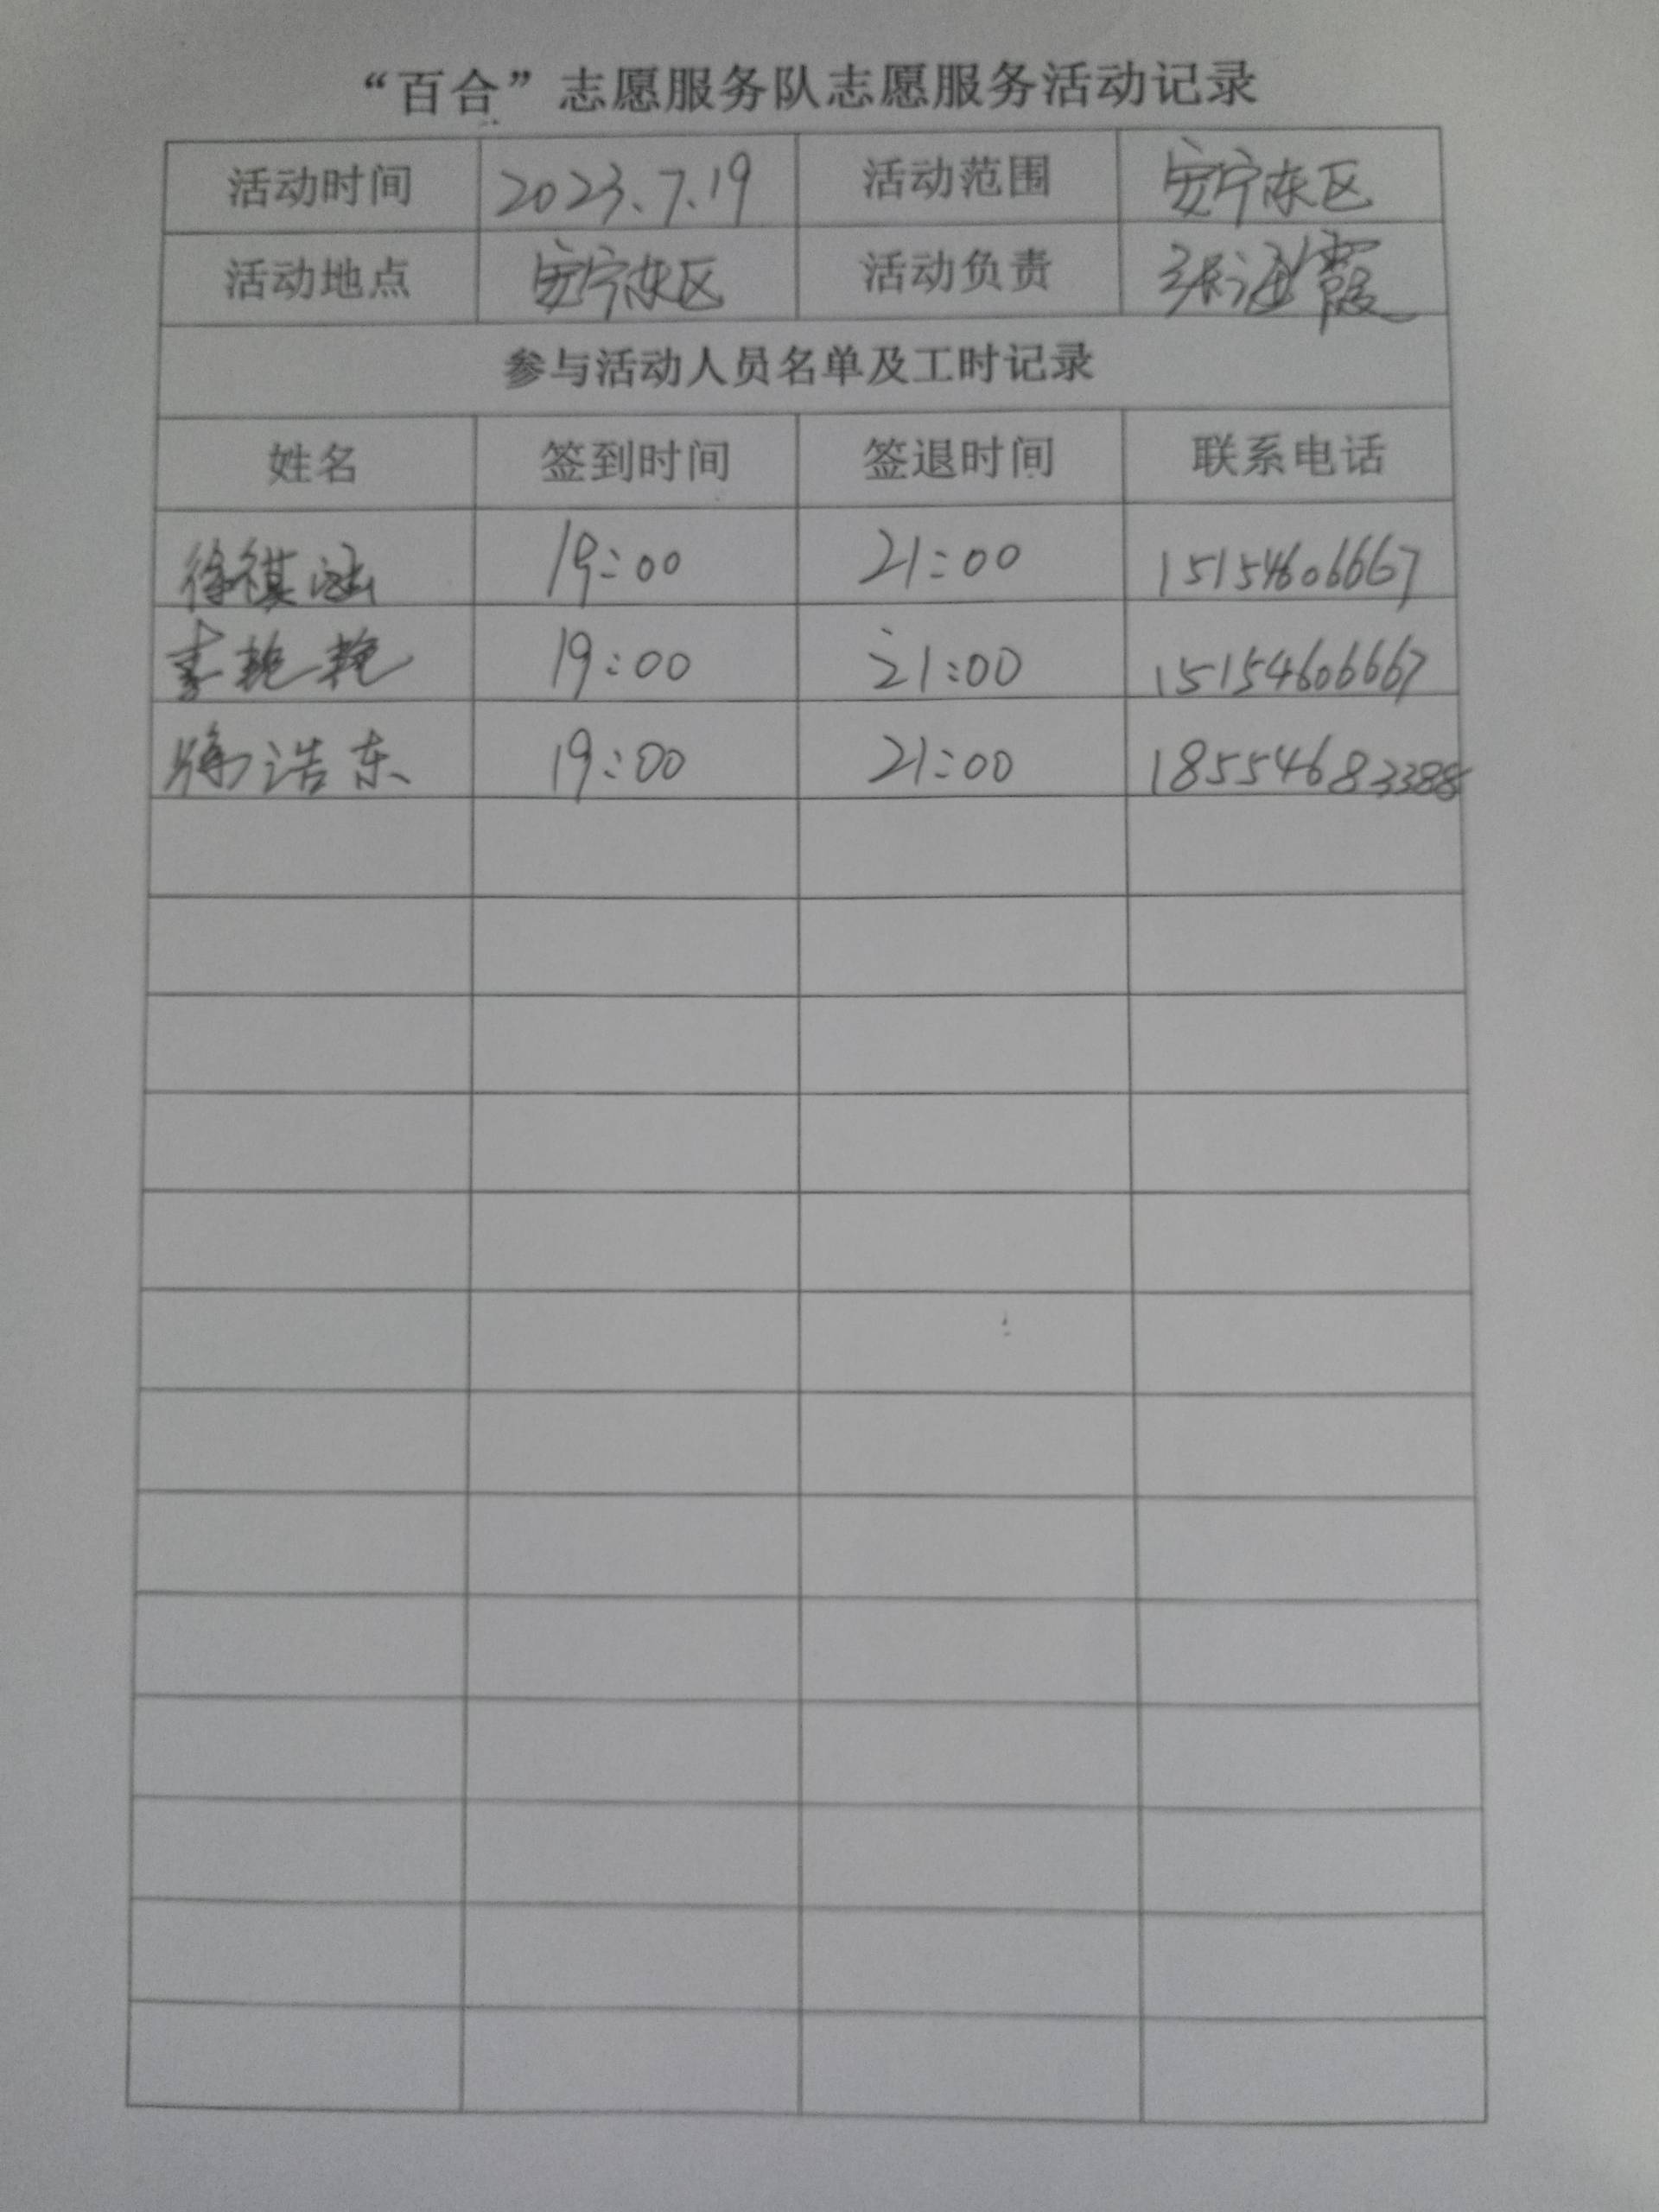 “百合”志愿服务队志愿服务活动记录
活动时间 2023.7.19 活动范围 安宁东区
活动地点 安宁东区 活动负责 张海霞
参与活动人员名单及工时记录
姓名 签到时间 签退时间 联系电话
徐祺涵 19:00 21:00 15154606667
李艳艳 19:00 21:00 15154606667
浩东 19:00 21:00 18554683388